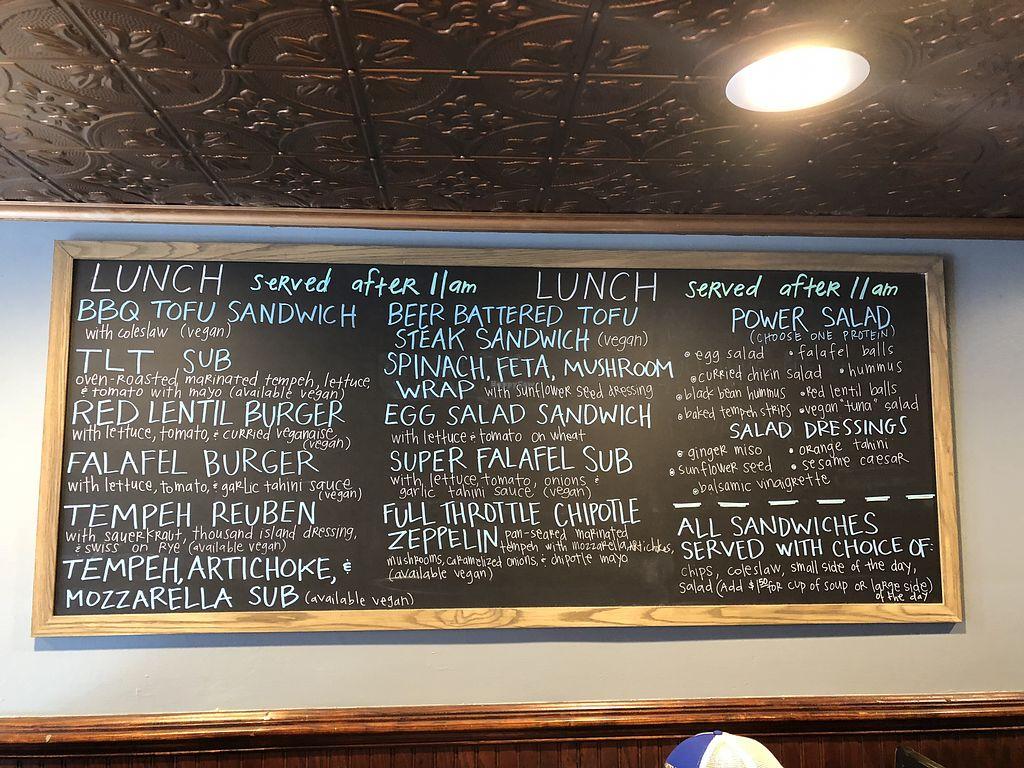 LUNCH served after 11am
BBQ TOFU SANDWICH
with coleslaw (vegan)
TLT SUB
oven-roasted, marinated tempeh, lettuce,
& tomato with mayo (available vegan)
RED LENTIL BURGER
with lettuce, tomato, & curried veganaise
(vegan)
FALAFEL BURGER
with lettuce, tomato, & garlic tahini sauce
(vegan)
TEMPEH REUBEN
with sauerkraut, thousand island dressing,
& swiss on Rye (available vegan)
TEMPEH, ARTICHOKE, &
MOZZARELLA SUB (available vegan)
LUNCH served after 11am
BEER BATTERED TOFU
STEAK SANDWICH (vegan)
SPINACH, FETA, MUSHROOM
WRAP with sunflower seed dressing
EGG SALAD SANDWICH
with lettuce & tomato on wheat
SUPER FALAFEL SUB
with lettuce, tomato, onions &
garlic tahini sauce (vegan)
FULL THROTTLE CHIPOTLE
ZEPPELIN pan-seared marinated
tempeh with mozzarella, artichokes,
mushrooms, caramelized onions, & chipotle mayo
(available vegan)
POWER SALAD
(CHOOSE ONE PROTEIN)
• egg salad • falafel balls
• curried chikin salad • hummus
• black bean hummus • red lentil balls
• baked tempeh strips • vegan "tuna" salad
SALAD DRESSINGS
• ginger miso • orange tahini
• sunflower seed • sesame caesar
• balsamic vinaigrette
ALL SANDWICHES
SERVED WITH CHOICE OF:
chips, coleslaw, small side of the day,
salad (Add $1.50 for cup of soup or large side)
of the day